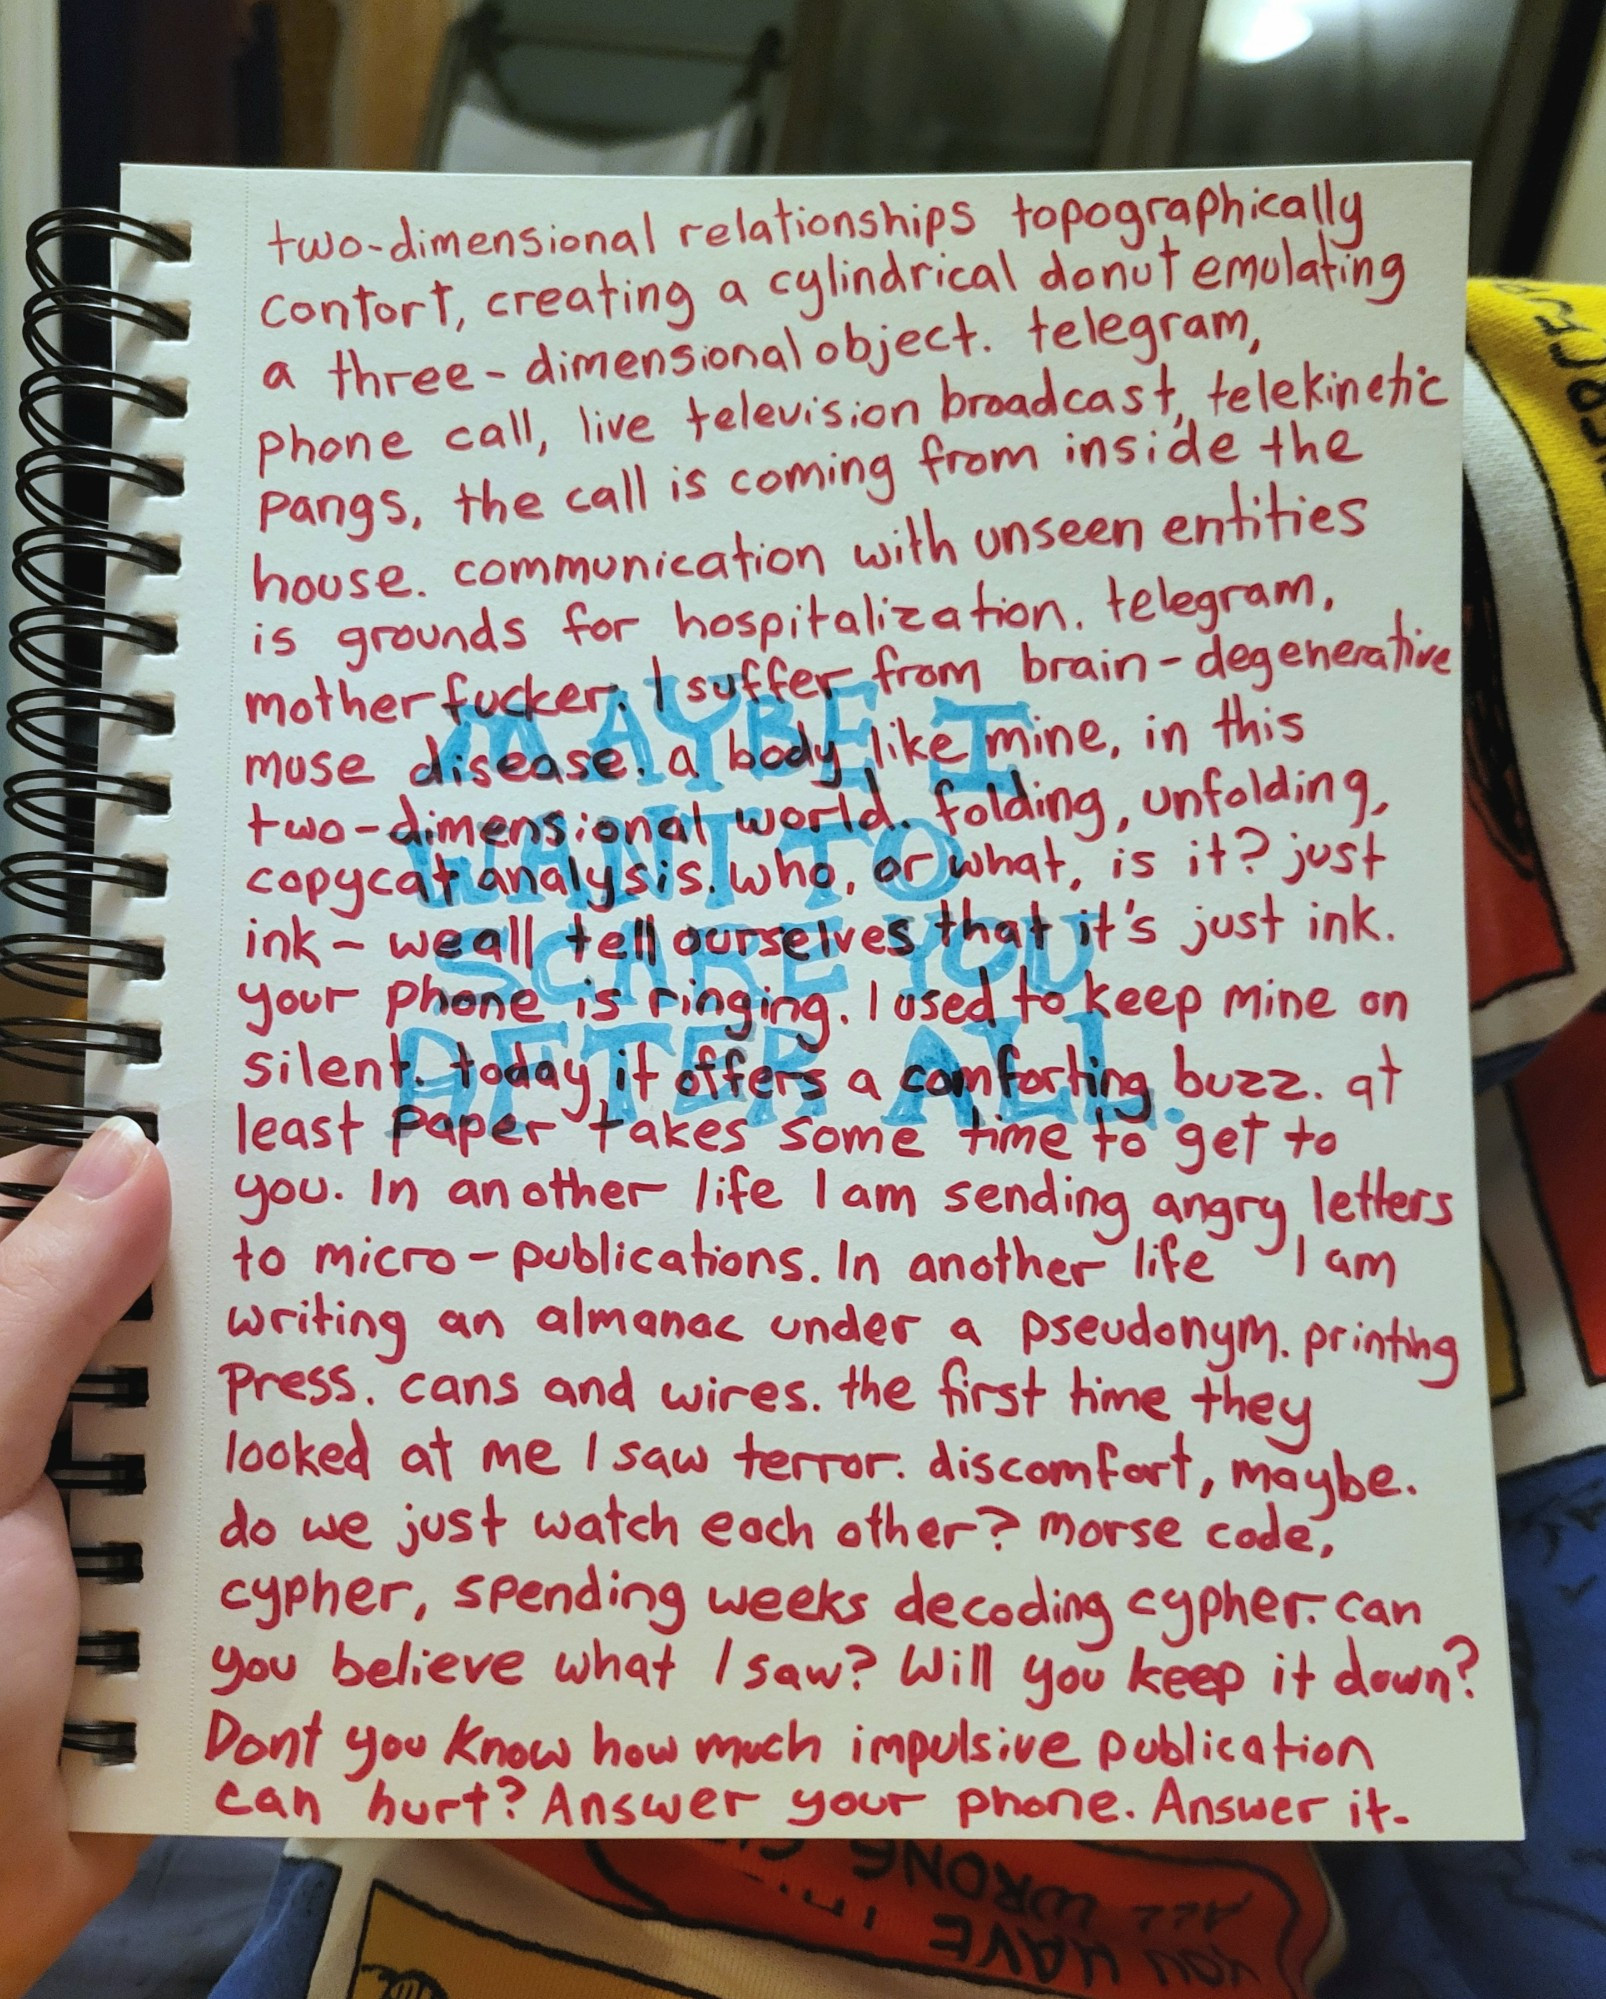 two-dimensional relationships topographically
contort, creating a cylindrical donut emulating
a three-dimensional object. telegram,
phone call, live television broadcast, telekinetic
pangs, the call is coming from inside the
house. communication with unseen entities
is grounds for hospitalization. telegram,
motherfucker. I suffer from brain-degenerative
muse disease. a body like mine, in this
two-dimensional world. folding, unfolding,
copycat analysis. who, or what, is it? just
ink - we all tell ourselves that it's just ink.
your phone is ringing. I used to keep mine on
silent. today it offers a comforting buzz. at
least paper takes some time to get to
you. In another life I am sending angry letters
to micro-publications. In another life I am
writing an almanac under a pseudonym. printing
press. cans and wires. the first time they
looked at me I saw terror. discomfort, maybe.
do we just watch each other? morse code,
cypher, spending weeks decoding cypher. can
you believe what I saw? Will you keep it down?
Dont you know how much impulsive publication
can hurt? Answer your phone. Answer it.
MAYBE I
WANT TO
SCARE YOU
AFTER ALL.
YOU HAVE
ALL WRONG